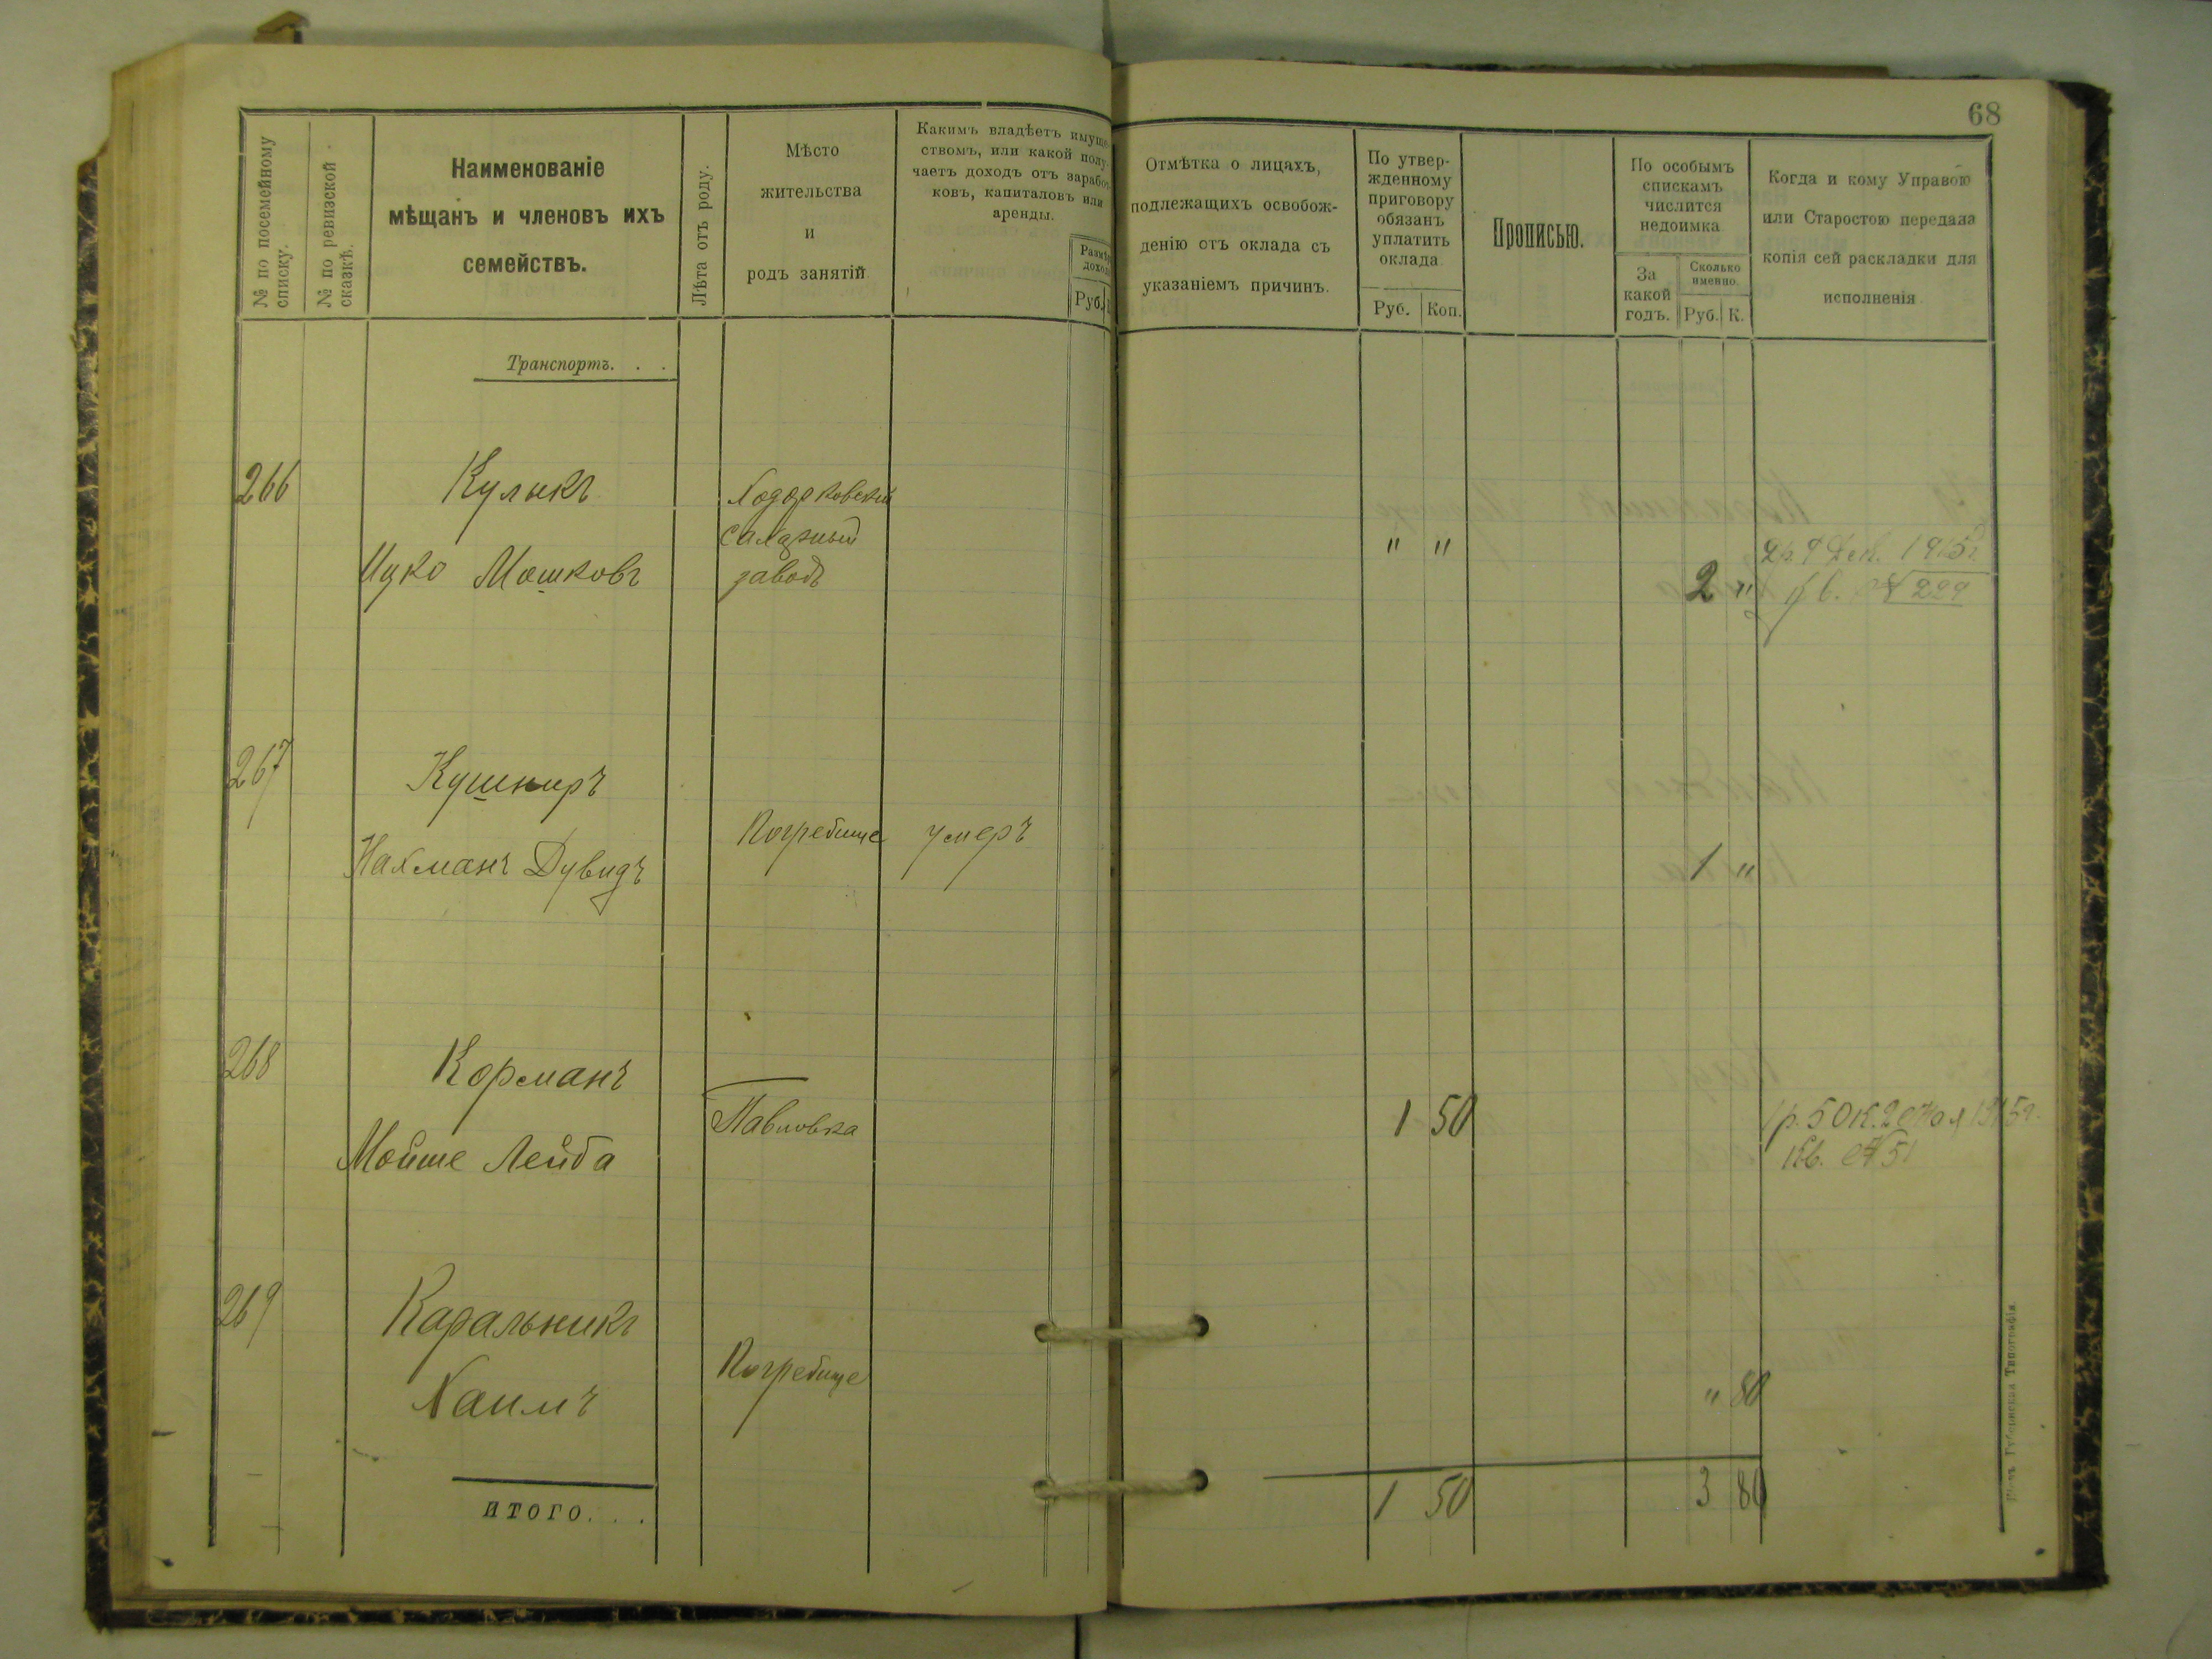 68
№ по посемейному
списку.
№ по ревизской
сказкѣ.
Наименованіе
мѣщанъ и членовъ ихъ
семействъ.
Лѣта отъ роду.
Мѣсто
жительства
и
родъ занятій
Какимъ владѣетъ имуще
ствомъ, или какой полу-
чаетъ доходъ отъ заработ
ковъ, капиталовъ или
аренды.
Размѣр
доход
Руб.
Отмѣтка о лицахъ,
подлежащихъ освобож-
денію отъ оклада съ
указаніемъ причинъ.
По утвер-
жденному
приговору
обязанъ
уплатить
оклада
Руб. Коп.
Прописью.
По особымъ
спискамъ
числится
недоимка
За
какой
годъ.
Сколько
именно
Руб. К.
Когда и кому Управою
или Старостою передана
копія сей раскладки для
исполненія
Транспортъ. . .
266
Кулыкъ
Ицко Мошковъ
Ходорковскій
сахарный
заводъ
" "
2 "
2р 9 Дек. 1915г
Кв. № 229
267
Кушниръ
Нахманъ Дувидъ
Погребище
умеръ
1 "
268
Корманъ
Мойше Лейба
Павловка
1 50
1р. 50к. 2 1915г.
Кв. № 51
269
Каральникъ
Хаимъ
Погребище
" 80
итого. . .
1 50
3 80
Губернская Типографія.